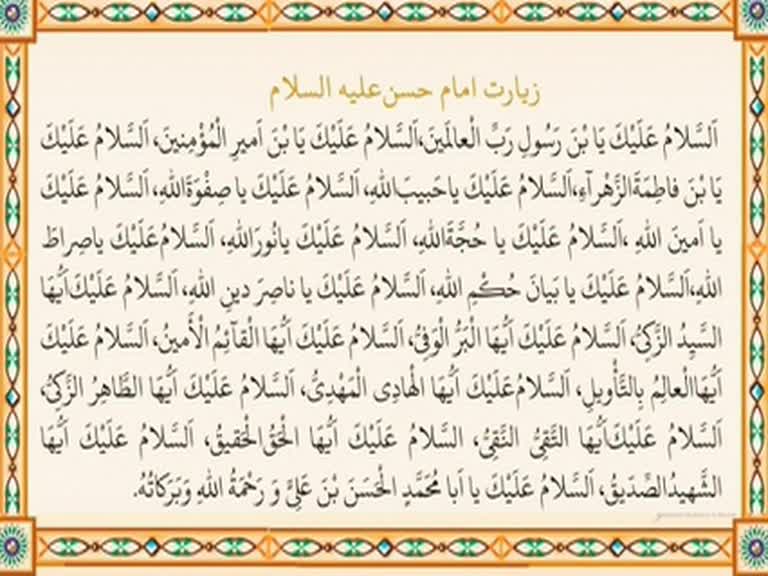 زیارت امام حسن علیه السلام
اَلسَّلامُ عَلَيْكَ يَا بْنَ رَسُولِ رَبِّ الْعالَمينَ،اَلسَّلامُ عَلَيْكَ يَا بْنَ اَميرِ الْمُؤْمِنينَ، اَلسَّلامُ عَلَيْكَ
يَا بْنَ فاطِمَةَالزَّهْرآءِ،اَلسَّلامُ عَلَيْكَ ياحَبيبَ اللهِ، اَلسَّلامُ عَلَيْكَ يا صِفْوَةَاللهِ، اَلسَّلامُ عَلَيْكَ
يا اَمينَ اللهِ ،اَلسَّلامُ عَلَيْكَ يا حُجَّةَاللهِ، اَلسَّلامُ عَلَيْكَ يانُورَاللهِ، اَلسَّلامُ عَلَيْكَ ياصِراطَ
اللهِ،اَلسَّلامُ عَلَيْكَ يا بَيانَ حُكْمِ اللهِ، اَلسَّلامُ عَلَيْكَ يا ناصِرَ دينِ اللهِ، اَلسَّلامُ عَلَيْكَ اَيُّهَا
السَّيِدُ الزَّكِىُّ، اَلسَّلامُ عَلَيْكَ اَيُّهَا الْبَرُّ الْوَفِىُّ، اَلسَّلامُ عَلَيْكَ اَيُّهَا الْقآئِمُ الْأَمينُ، اَلسَّلامُ عَلَيْكَ
اَيُّهَاالْعالِمُ بِالتَّأْويلِ، اَلسَّلامُ عَلَيْكَ اَيُّهَا الْهادِى الْمَهْدِىُّ، اَلسَّلامُ عَلَيْكَ اَيُّهَا الطَّاهِرُ الزَّكِىُّ،
اَلسَّلامُ عَلَيْكَ اَيُّهَا التَّقِىُّ النَّقِىُّ، السَّلامُ عَلَيْكَ اَيُّهَا الْحَقُّ الْحَقيقُ، اَلسَّلامُ عَلَيْكَ اَيُّهَا
الشَّهيدُالصِّدّيقُ، اَلسَّلامُ عَلَيْكَ يا اَبا مُحَمَّدٍ الْحَسَنَ بْنَ عَلِىٍّ وَ رَحْمَةُ اللهِ وَبَرَكاتُهُ.